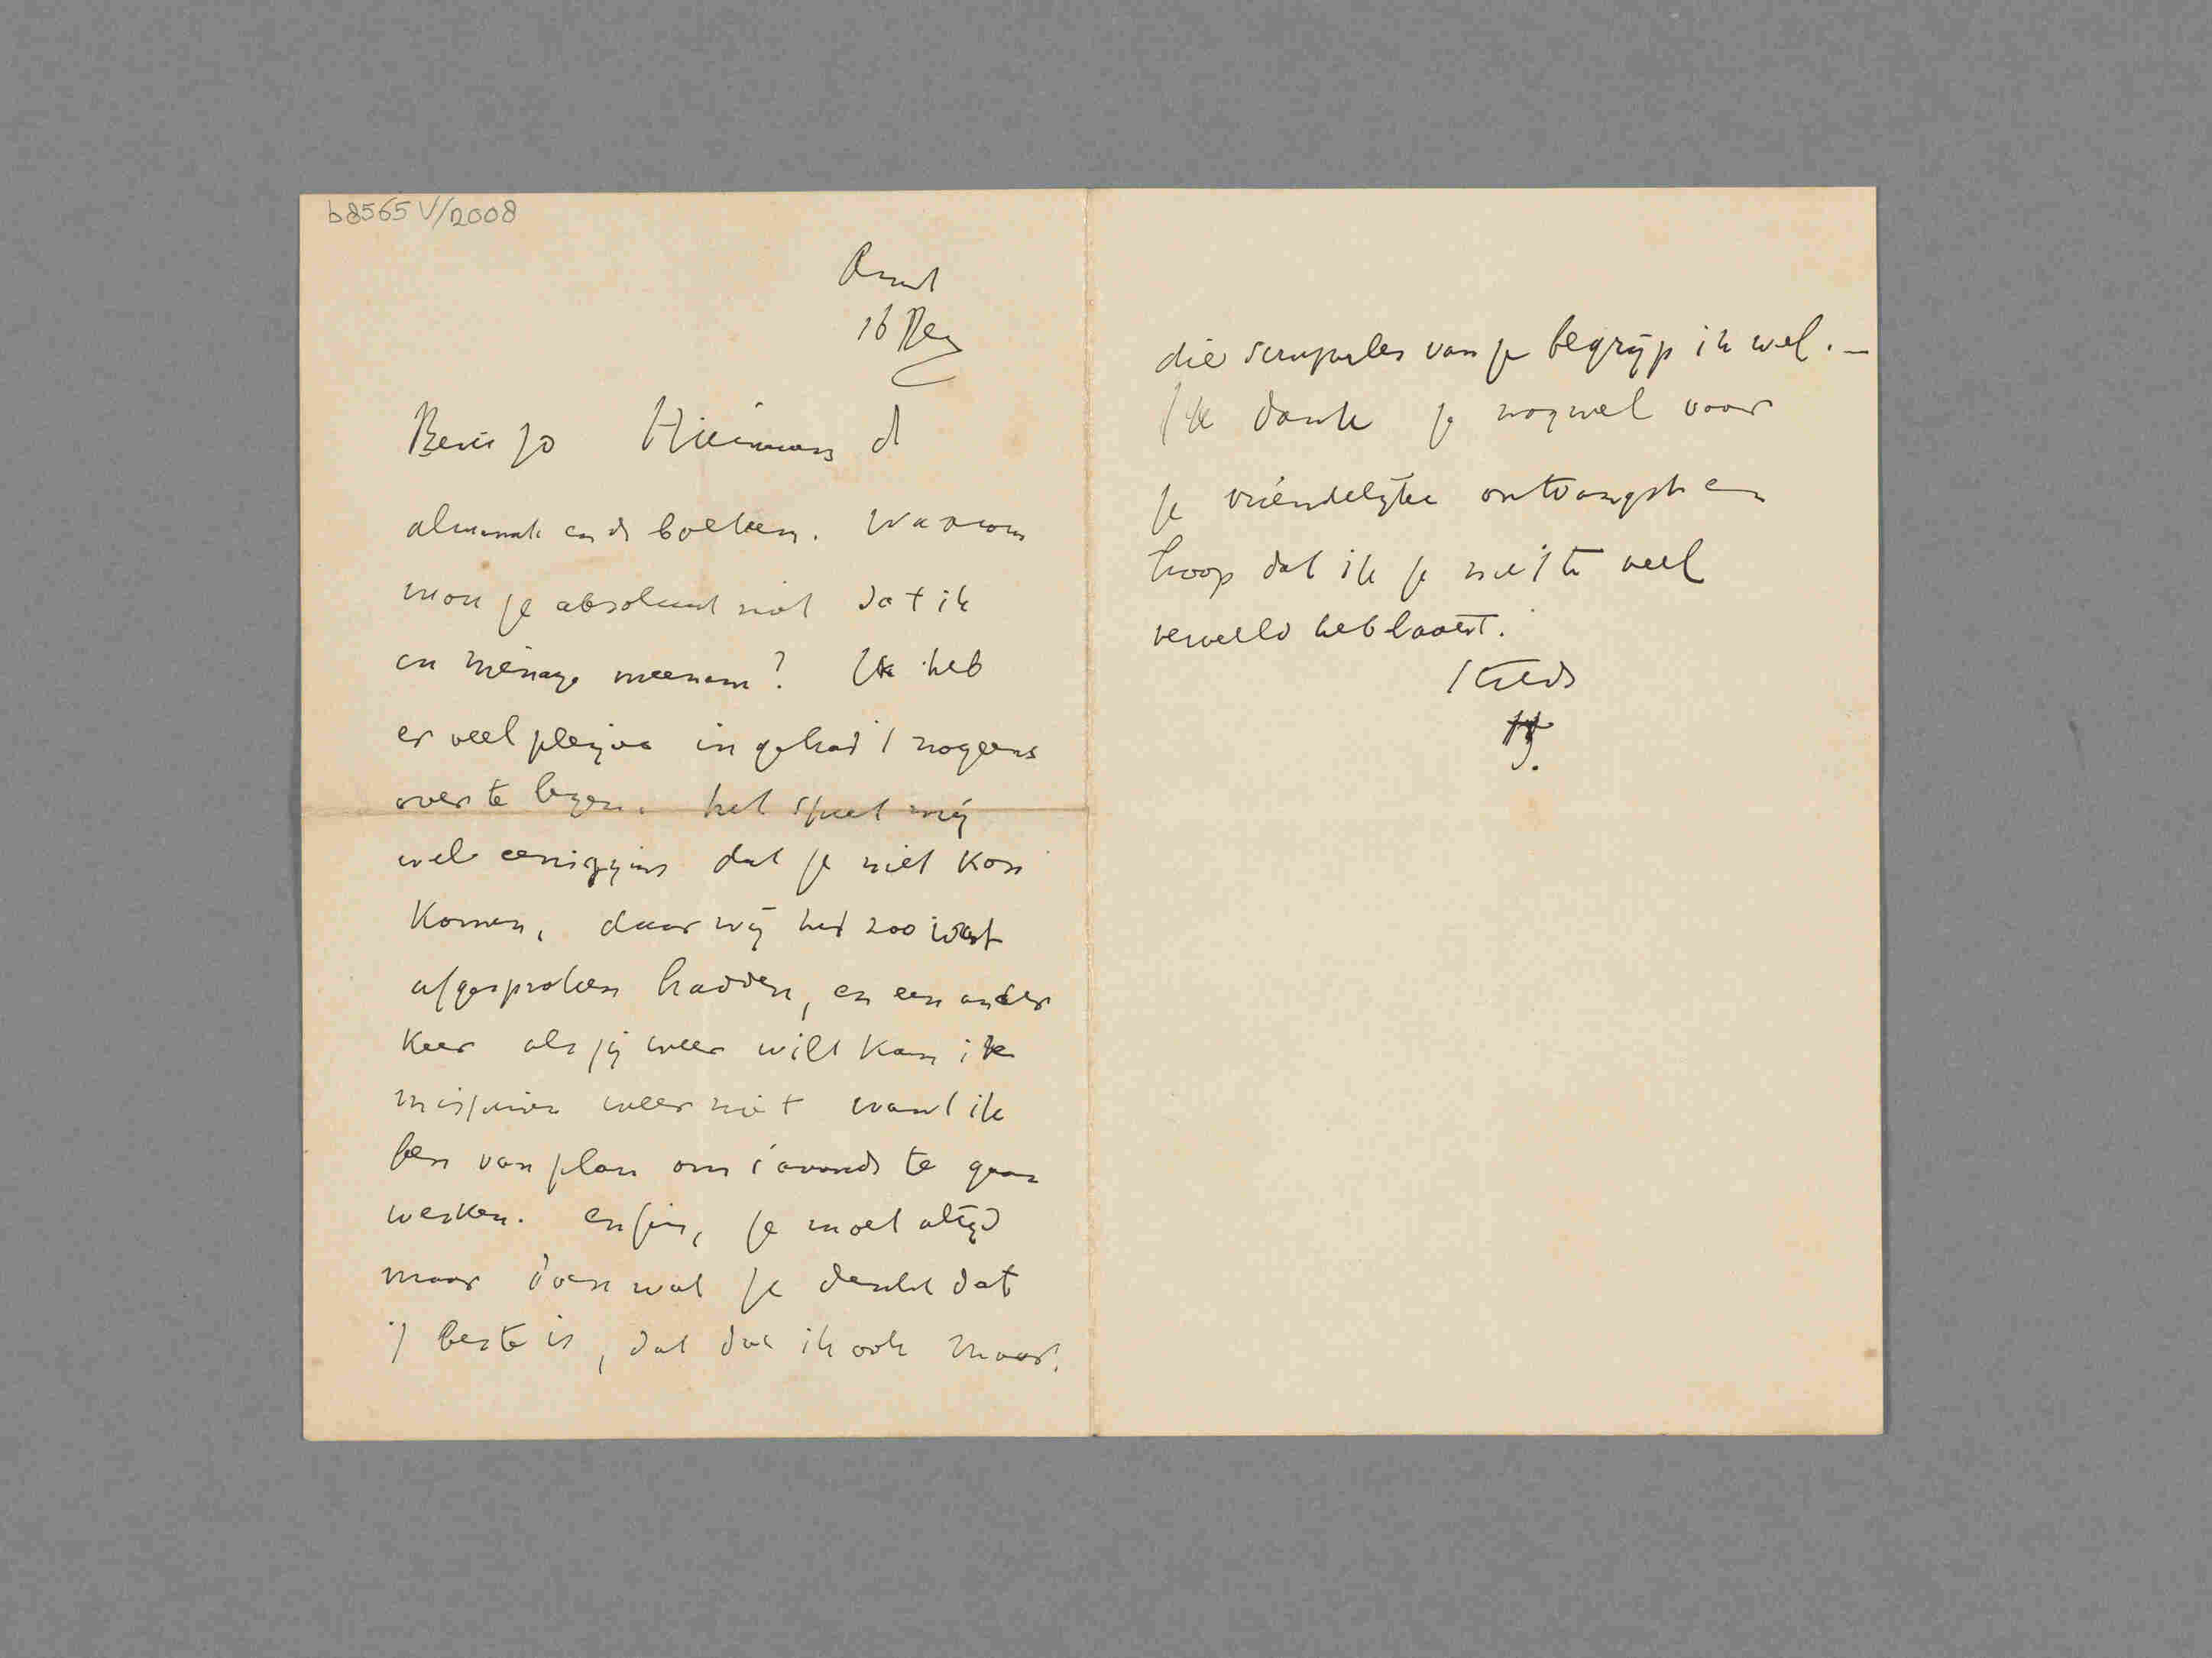 b8565 V/2008
Amst
16 Dez
Beste Jo Hiernevens d
almanak en de boeken. Waarom
mou je absoluut niet dat ik
en ménage meenam? Ik heb
er veel plezier in gehad 't nog eens
over te lezen. het speet mij
wel eenigzins dat je niet kon
komen, daar wij het zoo vast
afgesproken hadden, en een ander
keer als jij weer wilt kan ik
misschien weer niet want ik
ben van plan om 's avonds te gaan
werken. enfin, je moet altijd
maar doen wat je denkt dat
't beste is, dat doe ik ook maar.
die scrupules van je begrijp ik wel. —
Ik dank je nogwel voor
je vriendelijke ontvangst en
hoop dat ik je niet te veel
verveeld heb laatst.
steeds